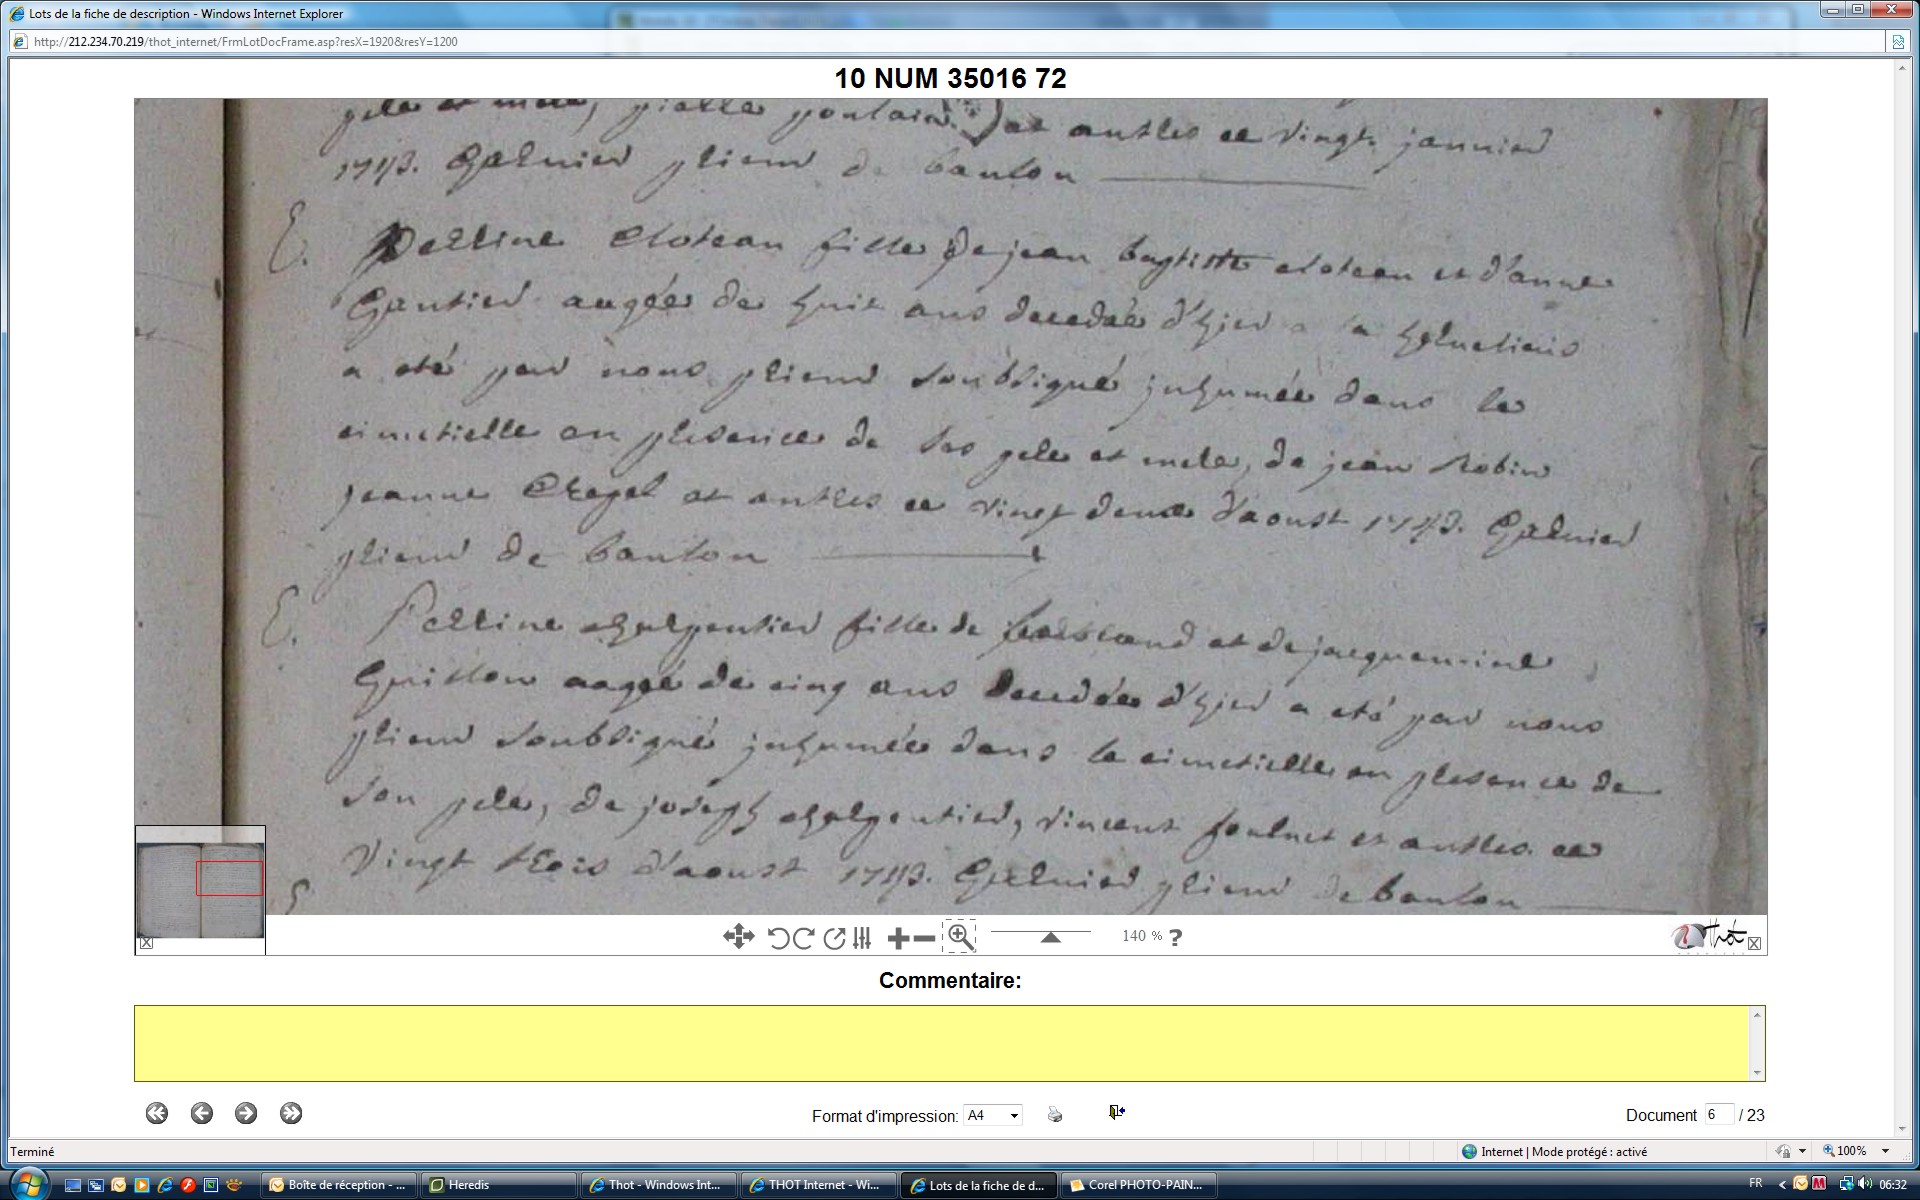 Lots de la fiche de description - Windows Internet Explorer
http://212.234.70.219/thot_internet/FrmLotDocFrame.asp?resX=1920&resY=1200
10 NUM 35016 72
pere et mere, pierre poulain et autres ce vingt janvier
1743. Garnier prieur de baulon
E. Perrine eloteau fille de jean baptiste eloteau et d'anne
Gautier aagée de huit ans decedée d'hier a la
a eté par nous prieur soubsigné inhumée dans le
cimetierre en presence de ses pere et mere, de jean Robin
jeanne et autres ce vingt deux d'aoust 1743. Garnier
prieur de baulon
E. Perrine charpentier fille de et de jacquemine
Guillou aagée de cinq ans decedée d'hier a eté par nous
prieur soubsigné inhumée dans le cimetierre en presence de
son pere, de joseph charpentier, vincent et autres ce
Vingt trois d'aoust 1743. Garnier prieur de baulon
140 % ?
Thot
Commentaire:
Format d'impression: A4
Document 6 / 23
Terminé
Internet | Mode protégé : activé
100%
Boîte de réception - ...
Heredis
Thot - Windows Int...
THOT Internet - Wi...
Lots de la fiche de d...
Corel PHOTO-PAIN...
FR
06:32